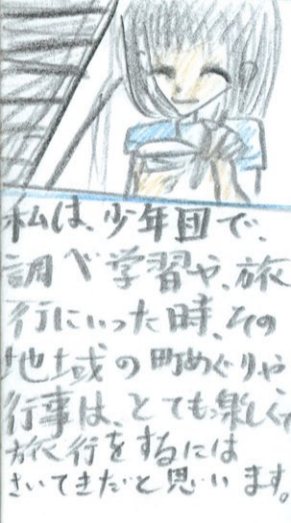 私は、少年団で、
調べ学習や、旅
行にいった時、その
地域の町めぐりや
行事は、とても楽しくて
旅行をするには
さいてきだと思います。